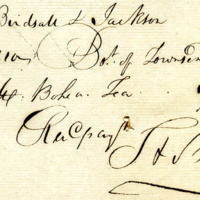 Birdsall & Jackson
Bot. of Townsen
Bohea Tea
Rec'd pay't